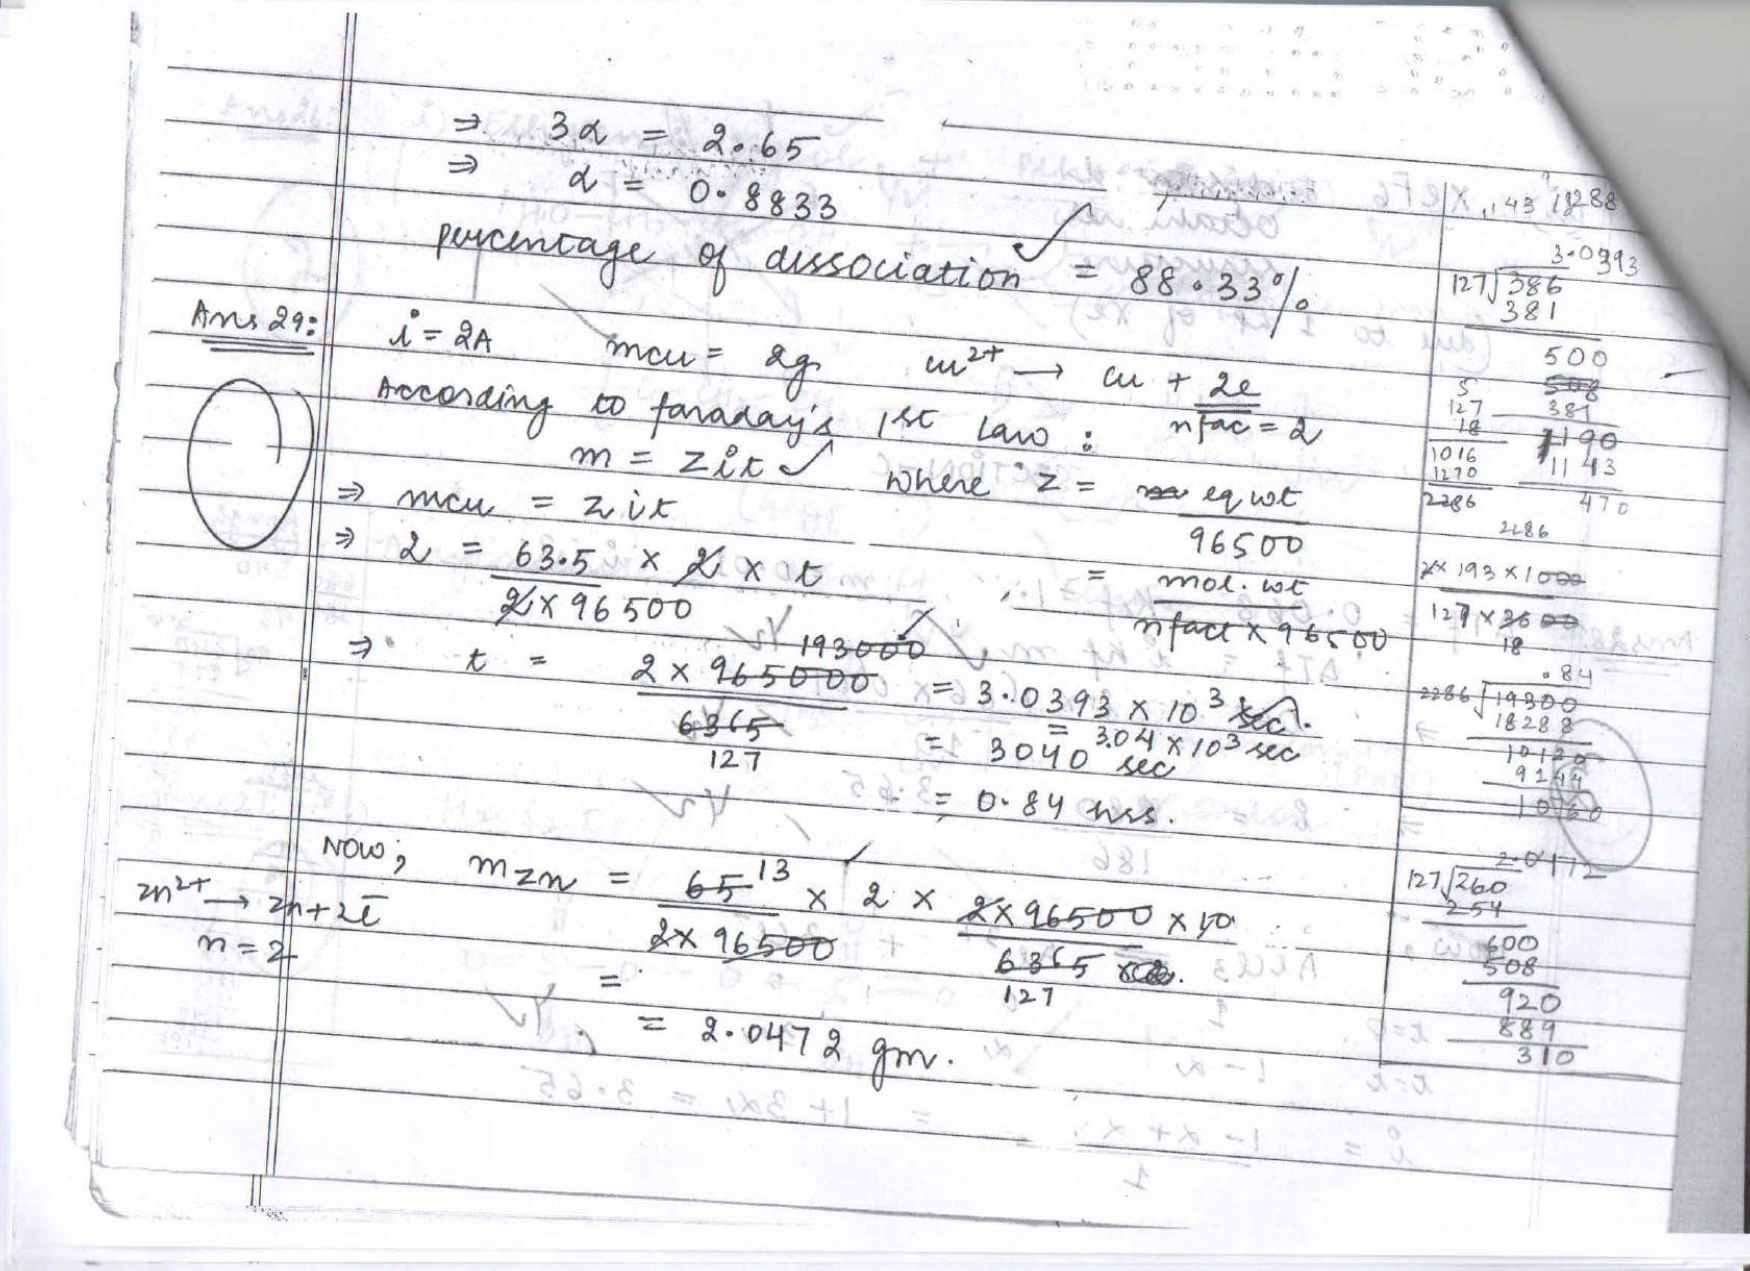 ⇒ 3α = 2.65
⇒ α = 0.8833
percentage of dissociation = 88.33%
Ans 29: i = 2A mcu = 2g cu²⁺ → cu + 2e
nfac = 2
According to faraday's 1st law :
m = zit where z = eq wt / 96500
⇒ mcu = zit
= mol. wt / nfact × 96500
⇒ 2 = 63.5 × 2 × t / 2 × 96500
193000
⇒ t = 2 × 965000 / 6365 = 3.0393 × 10³ sec.
127
= 3.04 × 10³ sec
= 3040 sec
= 0.84 hrs.
Now; mzn = 65 13 × 2 × 2 × 96500 × 10
2 × 96500 6365
127
zn²⁺ → zn + 2e̅
n = 2
=
= 2.0472 gm.
143 18288
3.0393
127 386
381
500
508
381
1190
1143
470
5
127
18
1016
1270
2286
2286
2 × 193 × 1000
127 × 3600
18
.84
2286 19300
18288
10120
9144
10760
2.0472
127 260
254
600
508
920
889
310